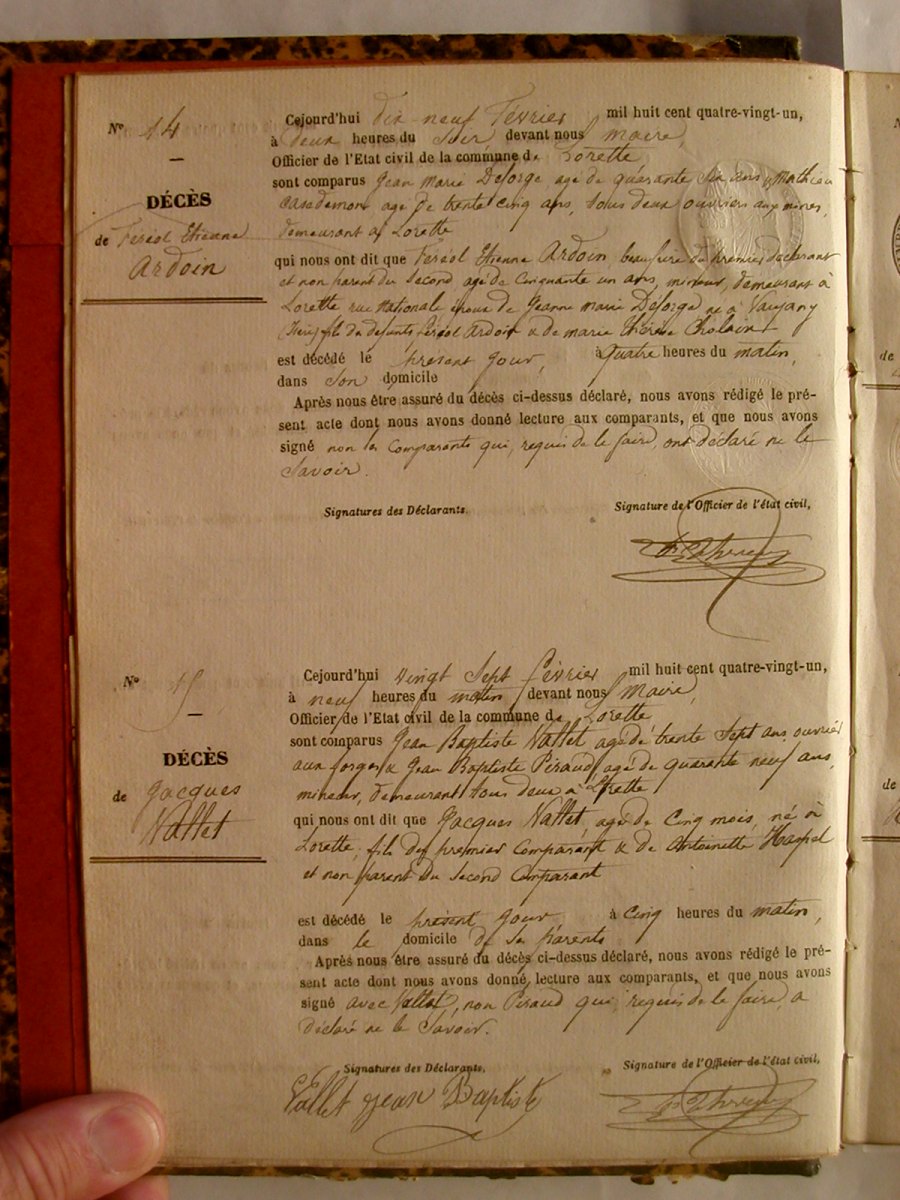 Nº 14
DÉCÈS
de Feréol Etienne
Ardoin
Cejourd'hui dix neuf Fevrier mil huit cent quatre-vingt-un,
à deux heures du Soir devant nous Maire,
Officier de l'Etat civil de la commune de Lorette
sont comparus Jean Marie Deforge agé de quarante six ans & Mathieu
agé de trente cinq ans, tous deux ouvriers aux mines,
demeurant à Lorette
qui nous ont dit que Feréol Etienne Ardoin beau frère du premier déclarant
et non parent du Second, agé de Cinquante un ans, mineur, demeurant à
Lorette rue Nationale époux de Jeanne Marie Deforge né à Vaujany
(Isère) fils de défunts Feréol Ardoin & de marie thérèse
est décédé le present jour, à quatre heures du matin,
dans Son domicile
Après nous être assuré du décès ci-dessus déclaré, nous avons rédigé le pré-
sent acte dont nous avons donné lecture aux comparants, et que nous avons
signé non les Comparants qui, requis de le faire, ont déclaré ne le
Savoir.
Signatures des Déclarants. Signature de l'Officier de l'état civil,
Nº 15
DÉCÈS
de Jacques
Vallet
Cejourd'hui vingt Sept fevrier mil huit cent quatre-vingt-un,
à neuf heures du matin devant nous Maire,
Officier de l'Etat civil de la commune de Lorette
sont comparus Jean Baptiste Vallet agé de trente Sept ans ouvrier
aux forges & Jean Baptiste Piraud, agé de quarante neuf ans,
mineur, demeurant tous deux à Lorette
qui nous ont dit que Jacques Vallet, agé de Cinq mois, né à
Lorette, fils du premier Comparant & de Antoinette
et non parent du Second Comparant
est décédé le présent jour, à Cinq heures du matin,
dans le domicile de Ses parents
Après nous être assuré du décès ci-dessus déclaré, nous avons rédigé le pré-
sent acte dont nous avons donné lecture aux comparants, et que nous avons
signé avec Vallet, non Piraud qui, requis de le faire, a
déclaré ne le Savoir.
Signatures des Déclarants, Signature de l'Officier de l'état civil,
Vallet jean Baptiste